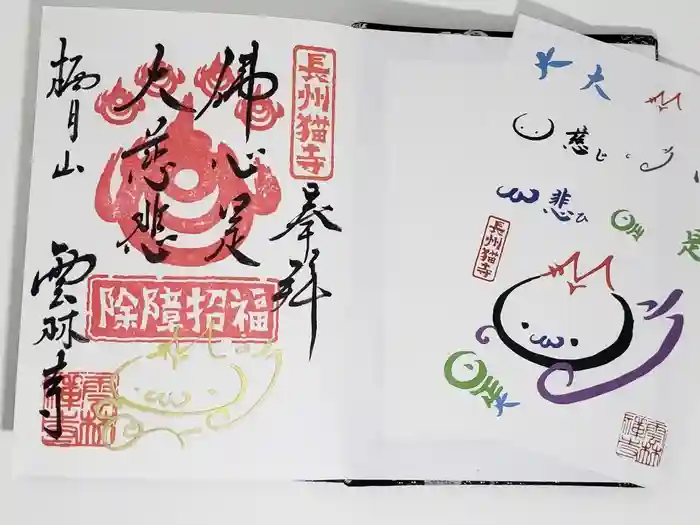 長州猫寺
奉拝
佛心是
大慈悲
栖月山
雲林寺
除障招福
雲林
禅寺
大
慈じ
悲ひ
是
長州猫寺
雲林
禅寺